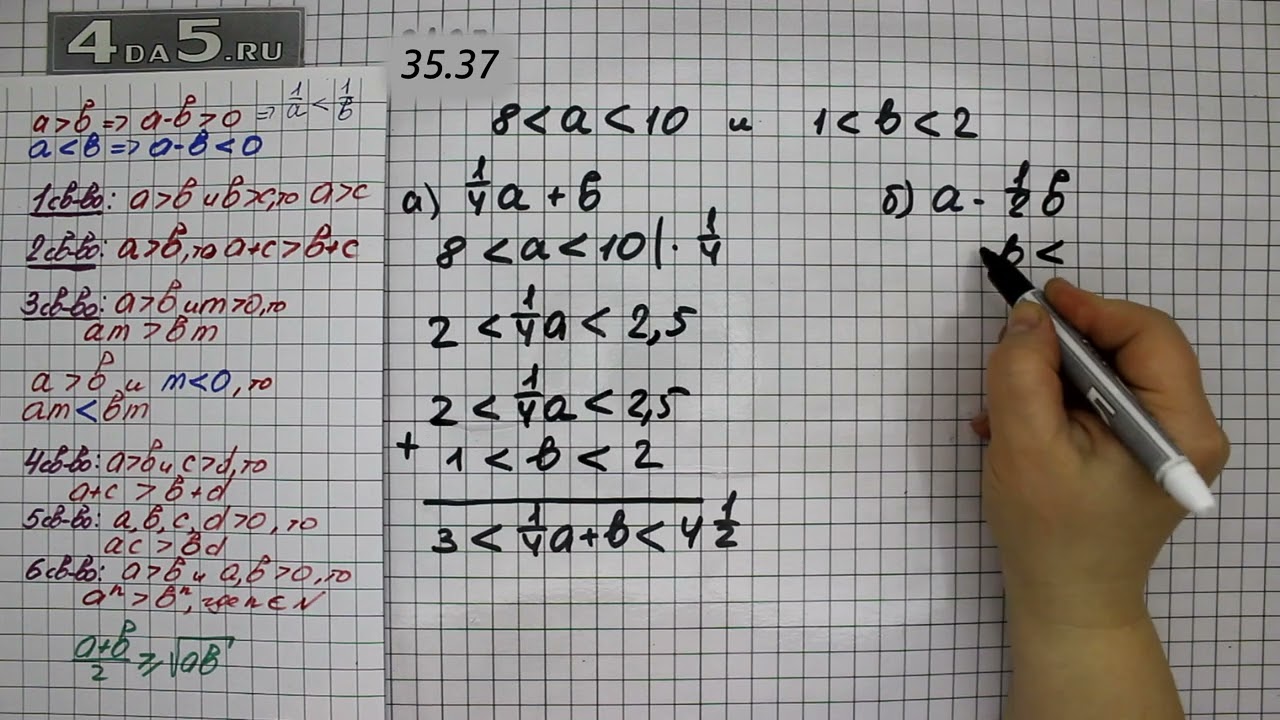 4DA5.RU
a>b => a-b>0 => 1/a < 1/b
a<b => a-b<0
1св-во: a>b и b>c, то a>c
2св-во: a>b, то a+c>b+c
3св-во: a>b и m>0, то
am > bm
a>b и m<0, то
am<bm
4св-во: a>b и c>d, то
a+c > b+d
5св-во: a, b, c, d>0, то
ac > bd
6св-во: a>b и a,b>0, то
aⁿ>bⁿ, где n ∈ N
(a+b)/2 ⩾ √ab
35.37
8<a<10 и 1<b<2
а) 1/4a + b
8<a<10|·1/4
2<1/4a<2,5
2<1/4a<2,5
+ 1<b<2
3<1/4a+b<4 1/2
б) a - 1/2b
b<